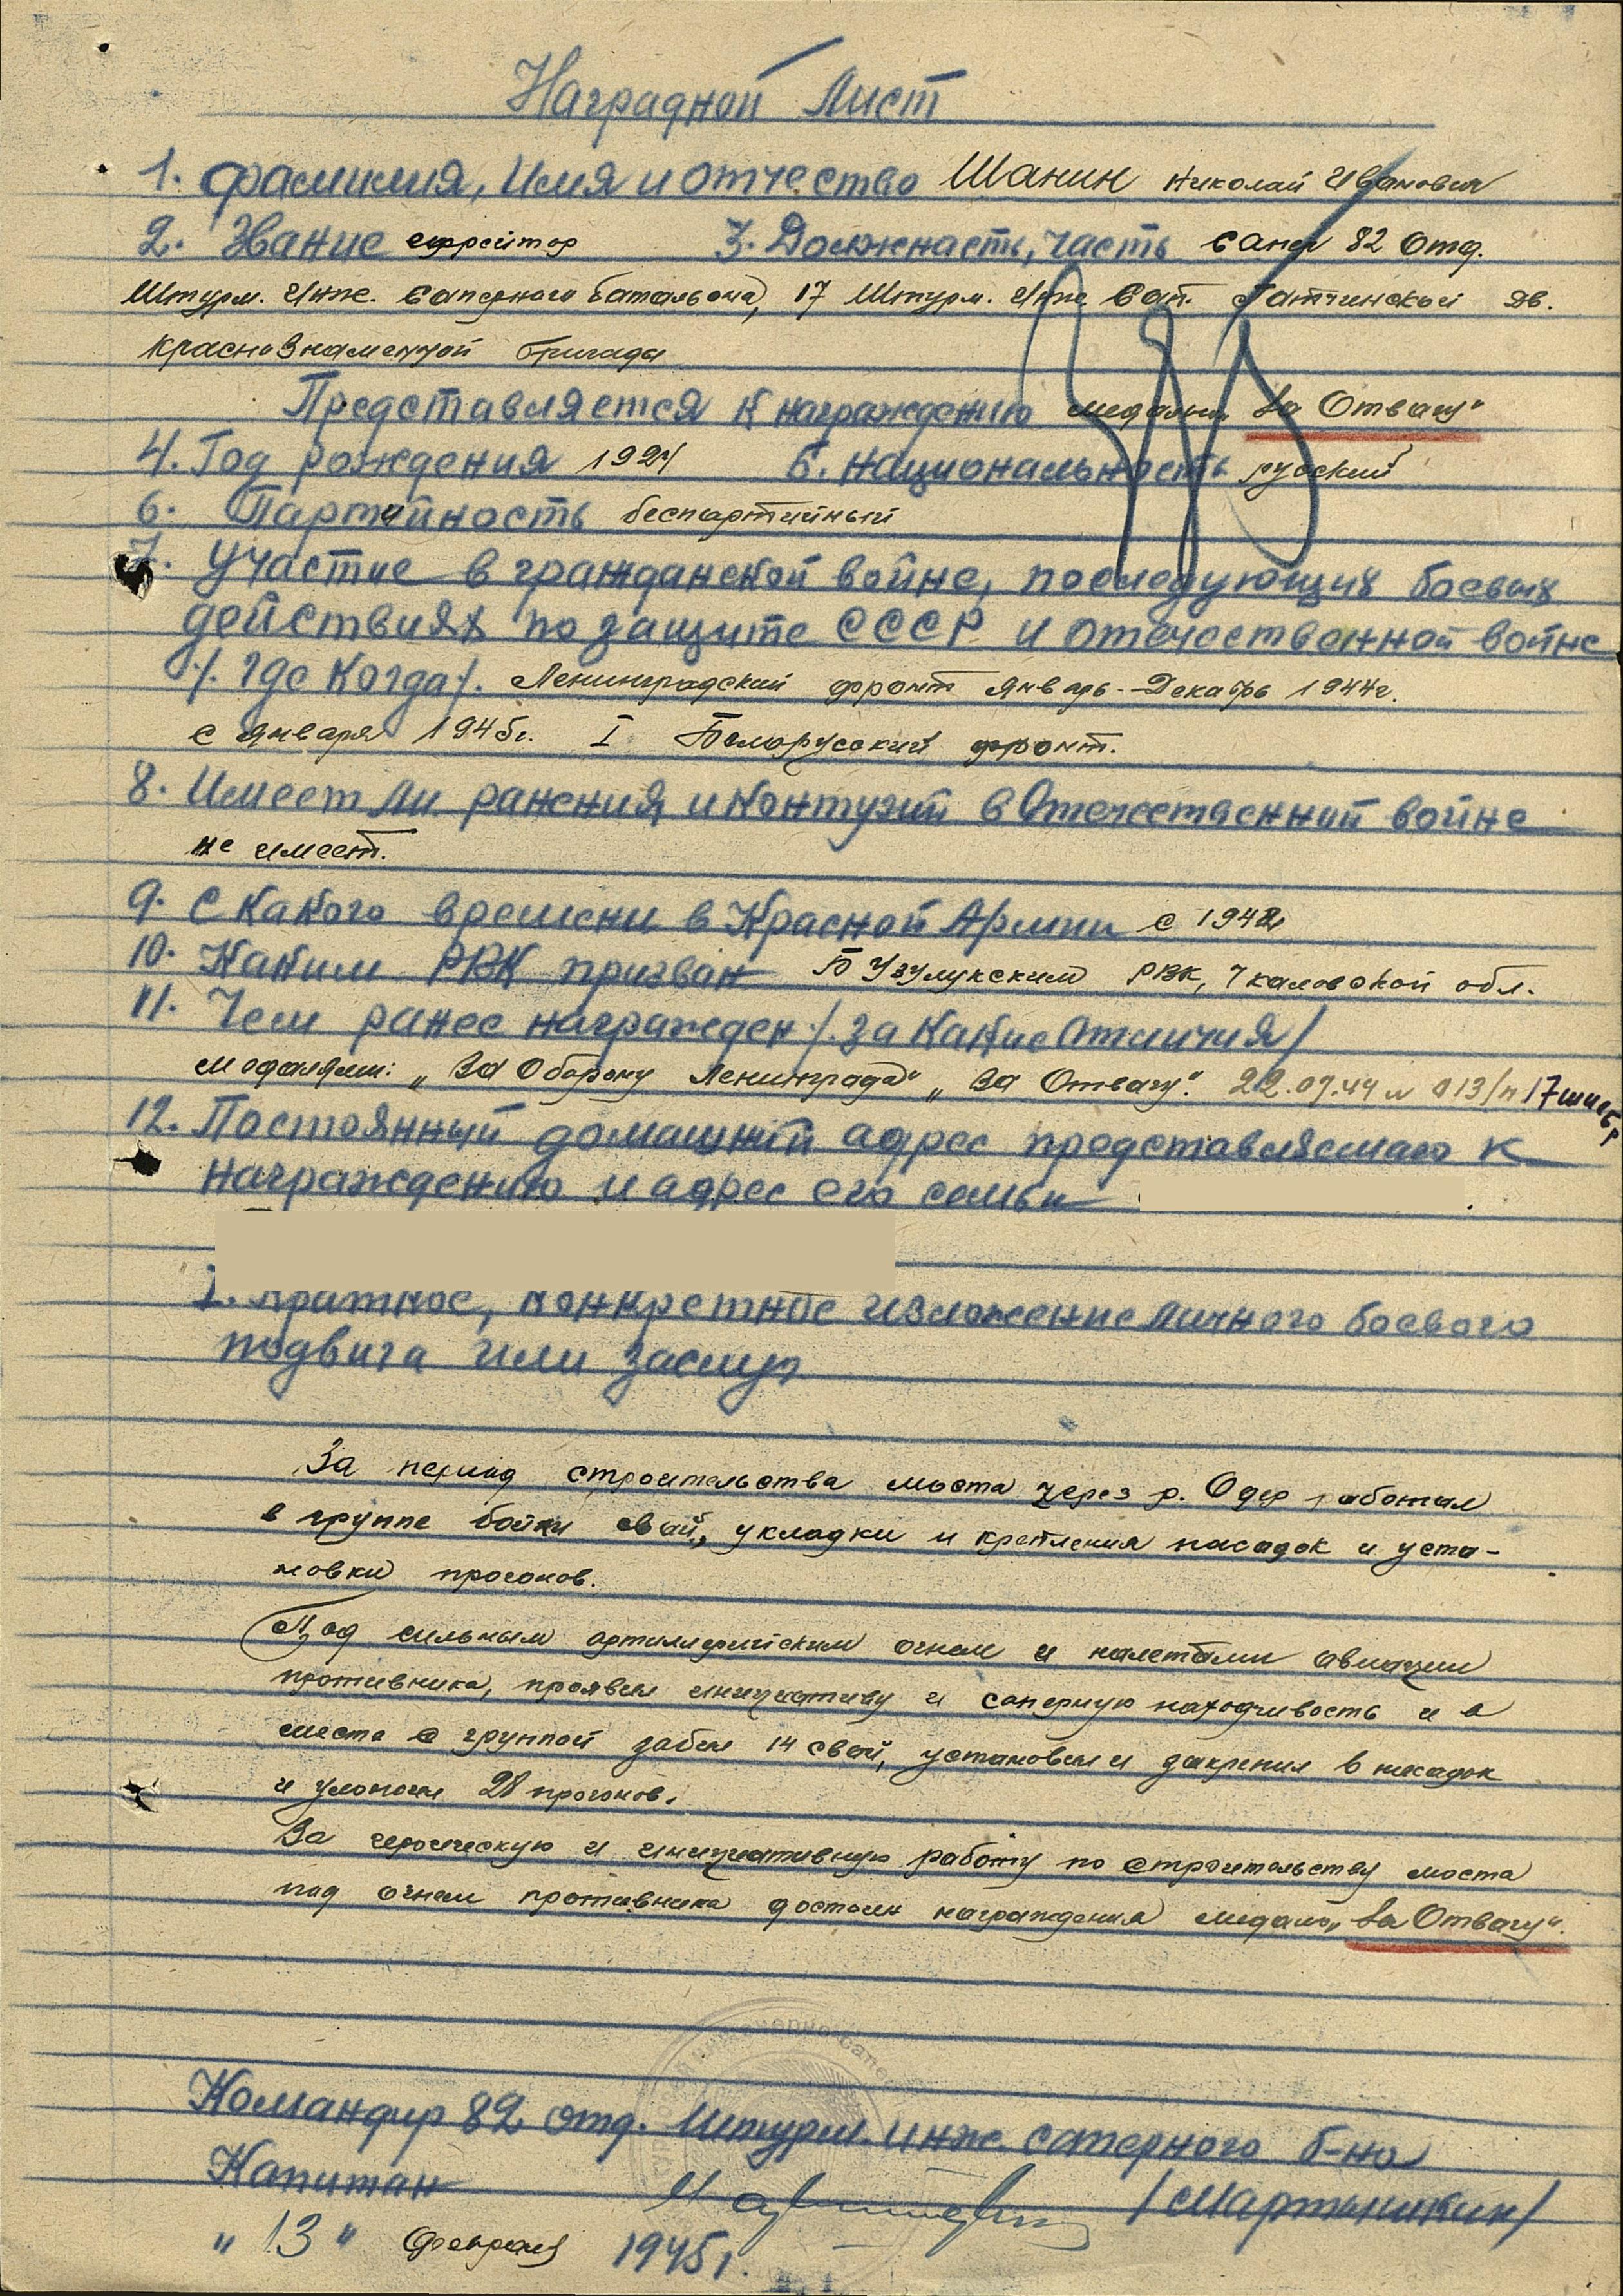 Наградной Лист
1. Фамилия, Имя и отчество Шанин Николай Иванович
2. Звание ефрейтор 3. Должность, часть сапер 82 Отд.
Штурм. Инж. Саперного батальона, 17 Штурм. Инж. Сап. Гатчинской Дв.
Краснознаменной бригады
Представляется к награждению медалью „За Отвагу“
4. Год рождения 1924 5. Национальность русский
6. Партийность беспартийный
7. Участие в гражданской войне, последующих боевых
действиях по защите СССР и отечественной войне
/. где когда/. Ленинградский фронт январь-Декабрь 1944г.
с января 1945г. I Белорусский фронт.
8. Имеет ли ранения и контузий в Отечественной войне
не имеет.
9. С какого времени в Красной Армии с 1942
10. Каким РВК призван Бузулукским РВК, Чкаловской обл.
11. Чем ранее награжден /. за какие отличия/
медалями: „За Оборону Ленинграда“ „За Отвагу“. 22.07.44 № 013/н 17 шисбр
12. Постоянный домашний адрес представляемого к
награждению и адрес его семьи
I. Краткое, конкретное изложение личного боевого
подвига или заслуг
За период строительства моста через р. Одер работал
в группе бойки свай, укладки и крепления насадок и уста-
новки прогонов.
Под сильным артиллерийским огнем и налетами авиации
противника, проявил инициативу и саперную находчивость и в
месте с группой забил 14 свай, установил и закрепил 6 насадок
и уложил 28 прогонов.
За героическую и инициативную работу по строительству моста
под огнем противника достоин награждения медалью „За Отвагу“.
Командир 82 отд. штурм. инж. саперного б-на
Капитан /Мартынинкин/
„13“ февраля 1945г.